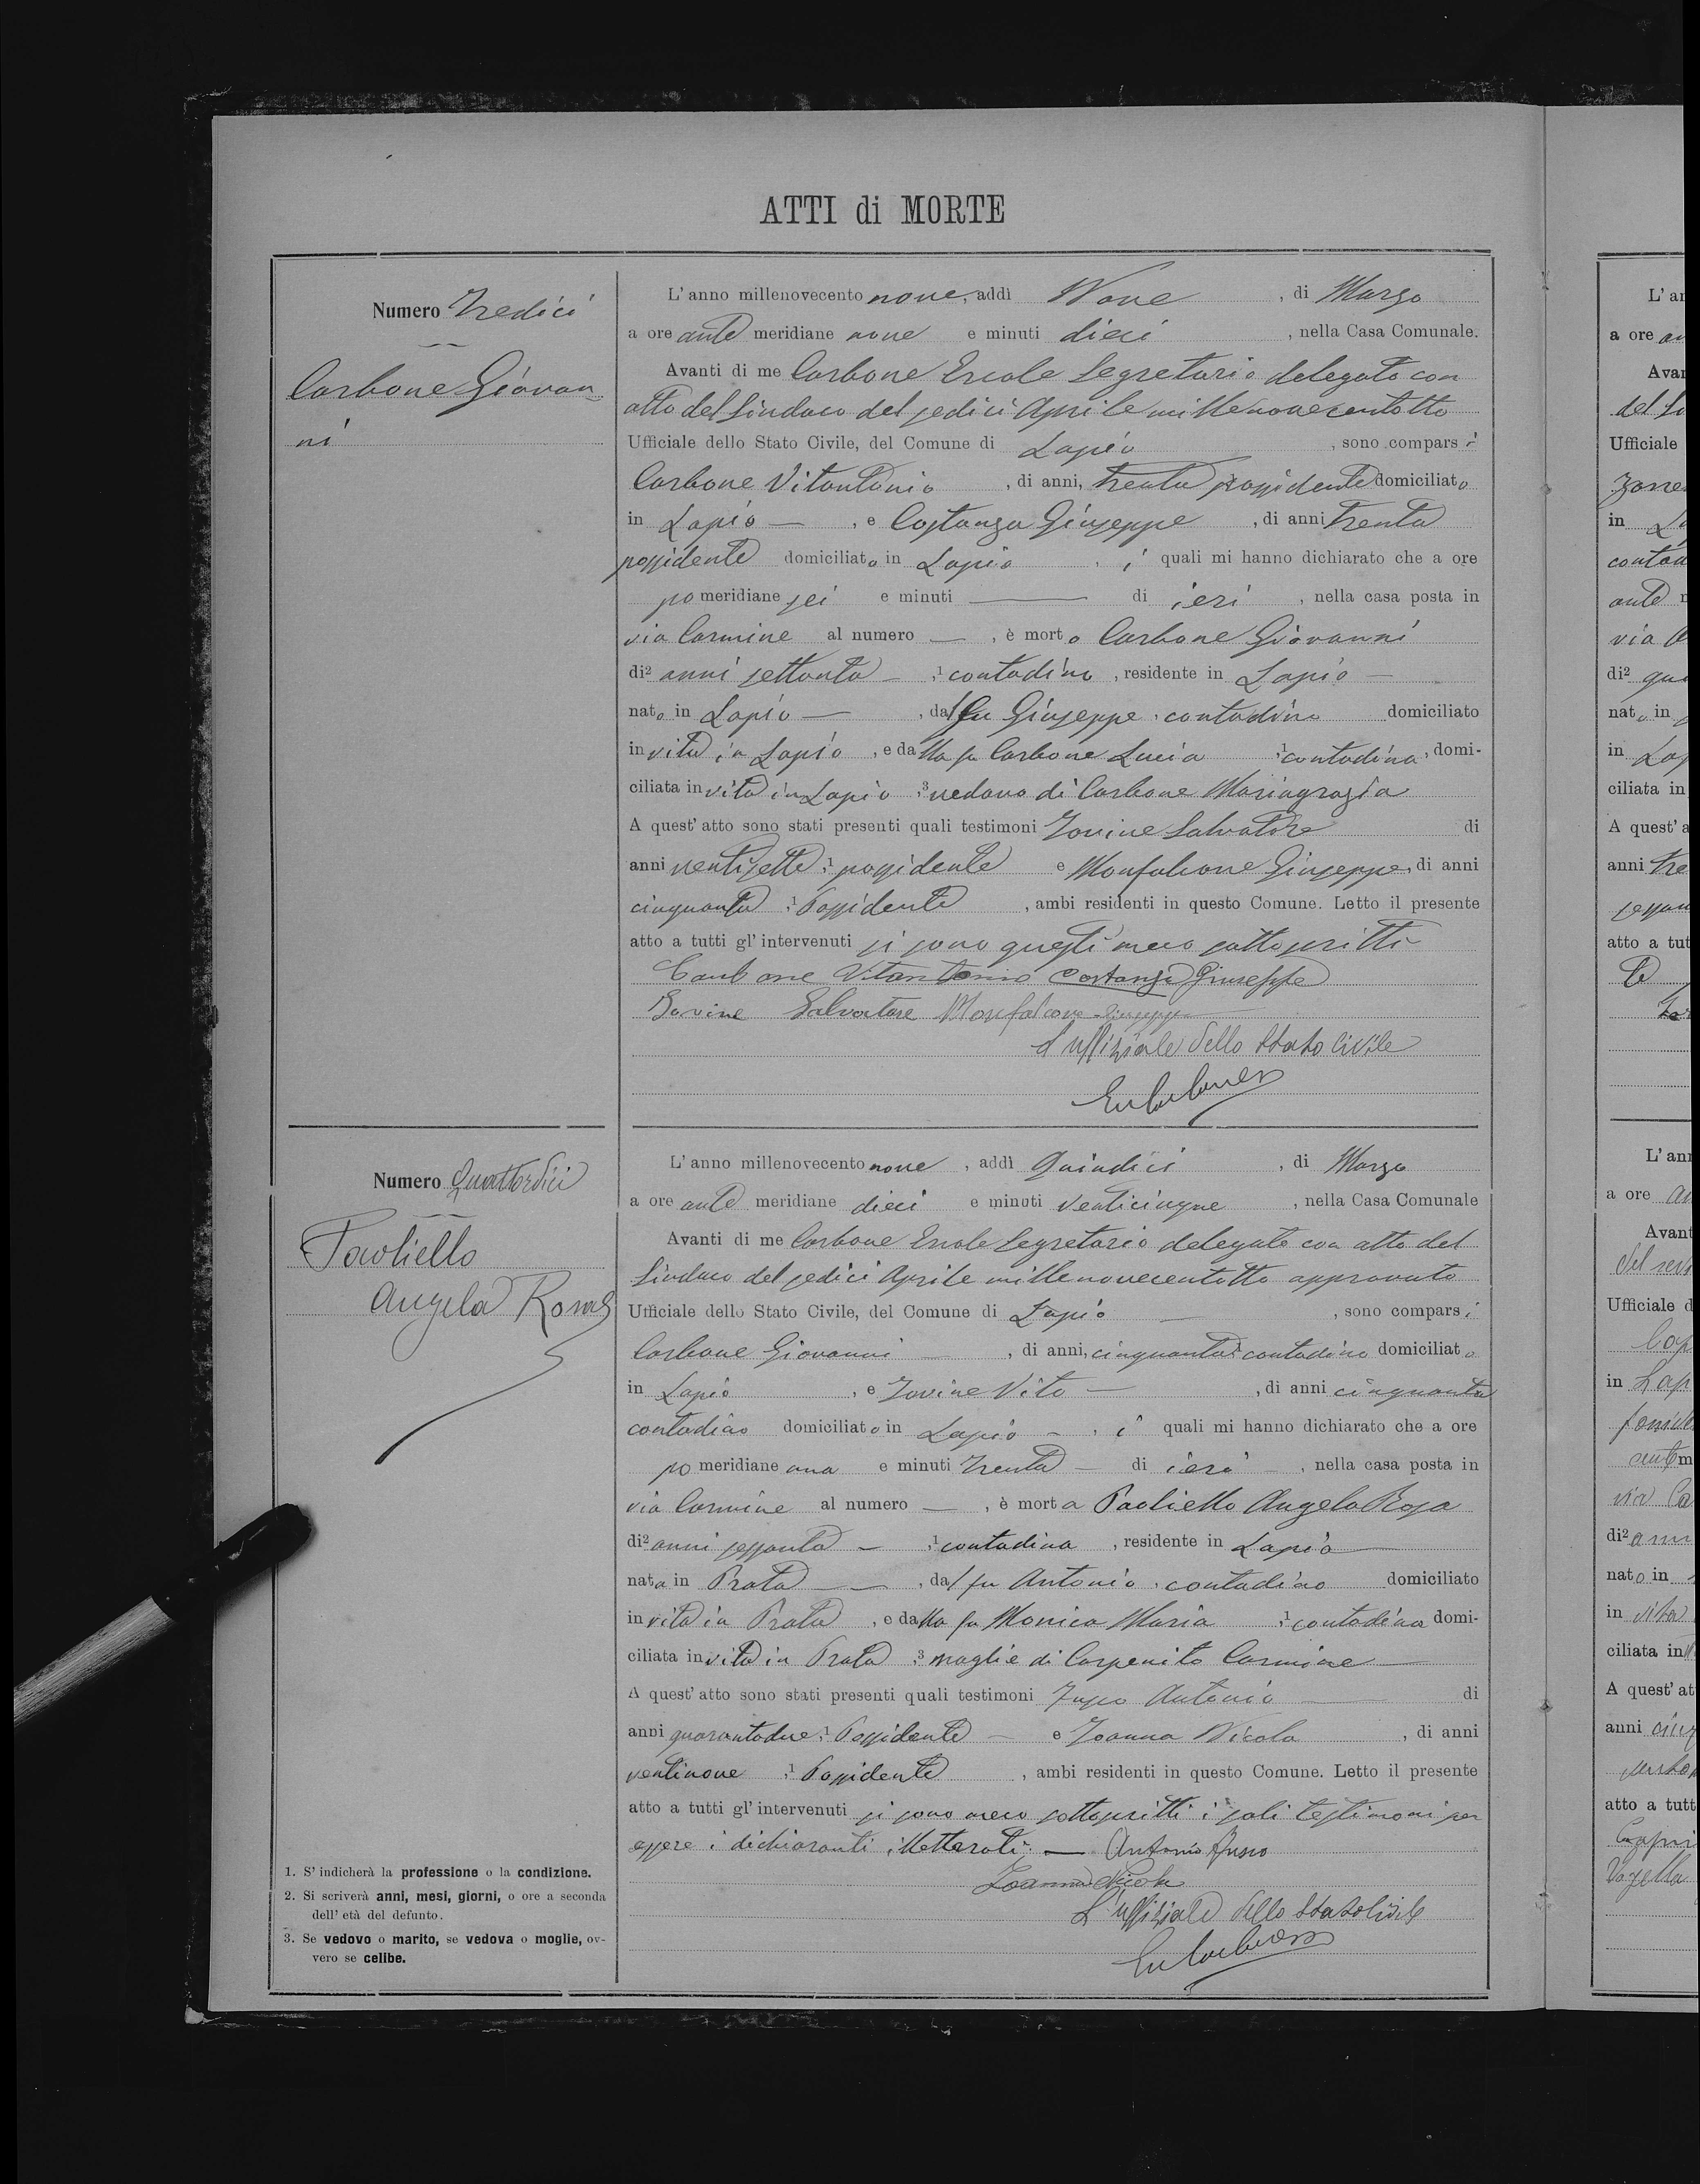 ATTI di MORTE
Numero Tredici
Carbone Giovan-
ni
L'anno millenovecento nove, addì Nove, di Marzo
a ore ante meridiane nove e minuti dieci, nella Casa Comunale.
Avanti di me Carbone Ercole Segretario delegato con
atto del Sindaco del sedici Aprile millenovecentotto
Ufficiale dello Stato Civile, del Comune di Lapio, sono comparsi
Carbone Vitantonio, di anni, trenta possidente domiciliato
in Lapio —, e Costanza Giuseppe, di anni trenta
possidente domiciliato in Lapio, i quali mi hanno dichiarato che a ore
po meridiane sei e minuti — di ieri, nella casa posta in
via Carmine al numero —, è morto Carbone Giovanni
di2 anni settanta —,1 contadino, residente in Lapio —
nato in Lapio —, dal fu Giuseppe, contadino domiciliato
in vita in Lapio, e dalla fu Carbone Lucia,1 contadina, domi-
ciliata in vita in Lapio,3 vedovo di Carbone Mariagrazia
A quest'atto sono stati presenti quali testimoni Iovine Salvatore di
anni ventisette,1 possidente e Monfalcone Giuseppe, di anni
cinquanta,1 Possidente, ambi residenti in questo Comune. Letto il presente
atto a tutti gl'intervenuti si sono questi meco sottoscritti
Carbone Vitantonio Costanza Giuseppe
Iovine Salvatore Monfalcone Giuseppe
L'uffiziale dello Stato Civile
Numero Quattordici
Paoliello
Angela Rosa
L'anno millenovecento nove, addì Quindici, di Marzo
a ore ante meridiane dieci e minuti venticinque, nella Casa Comunale
Avanti di me Carbone Ercole Segretario delegato con atto del
Sindaco del sedici Aprile millenovecentotto approvato
Ufficiale dello Stato Civile, del Comune di Lapio, sono comparsi
Carbone Giovanni —, di anni, cinquanta contadino domiciliato
in Lapio, e Iovine Vito —, di anni cinquanta
contadino domiciliato in Lapio —, i quali mi hanno dichiarato che a ore
po meridiane una e minuti trenta — di ieri —, nella casa posta in
via Carmine al numero —, è morta Paoliello Angela Rosa
di2 anni sessanta —,1 contadina, residente in Lapio —
nata in Prata —, dal fu Antonio, contadino domiciliato
in vita in Prata, e dalla fu Monica Maria,1 contadina domi-
ciliata in vita in Prata,3 moglie di Carpenito Carmine —
A quest'atto sono stati presenti quali testimoni Fusco Antonio — di
anni quarantadue,1 Possidente — e Ioanna Nicola, di anni
ventinove,1 Possidente, ambi residenti in questo Comune. Letto il presente
atto a tutti gl'intervenuti si sono meco sottoscritti i soli testimoni per
essere i dichiaranti illetterati. — Antonio Fusco
Ioanna Nicola
L'uffiziale dello Stato Civile
1. S'indicherà la professione o la condizione.
2. Si scriverà anni, mesi, giorni, o ore a seconda
dell'età del defunto.
3. Se vedovo o marito, se vedova o moglie, ov-
vero se celibe.
a ore
Avan
Ufficiale
in
di2
nato in
in
ciliata in
A quest'a
anni tre
atto a tut
L'an
a ore
Avant
Ufficiale d
in Lap
di2
nato in
in vita
ciliata in
A quest'at
anni
atto a tutt